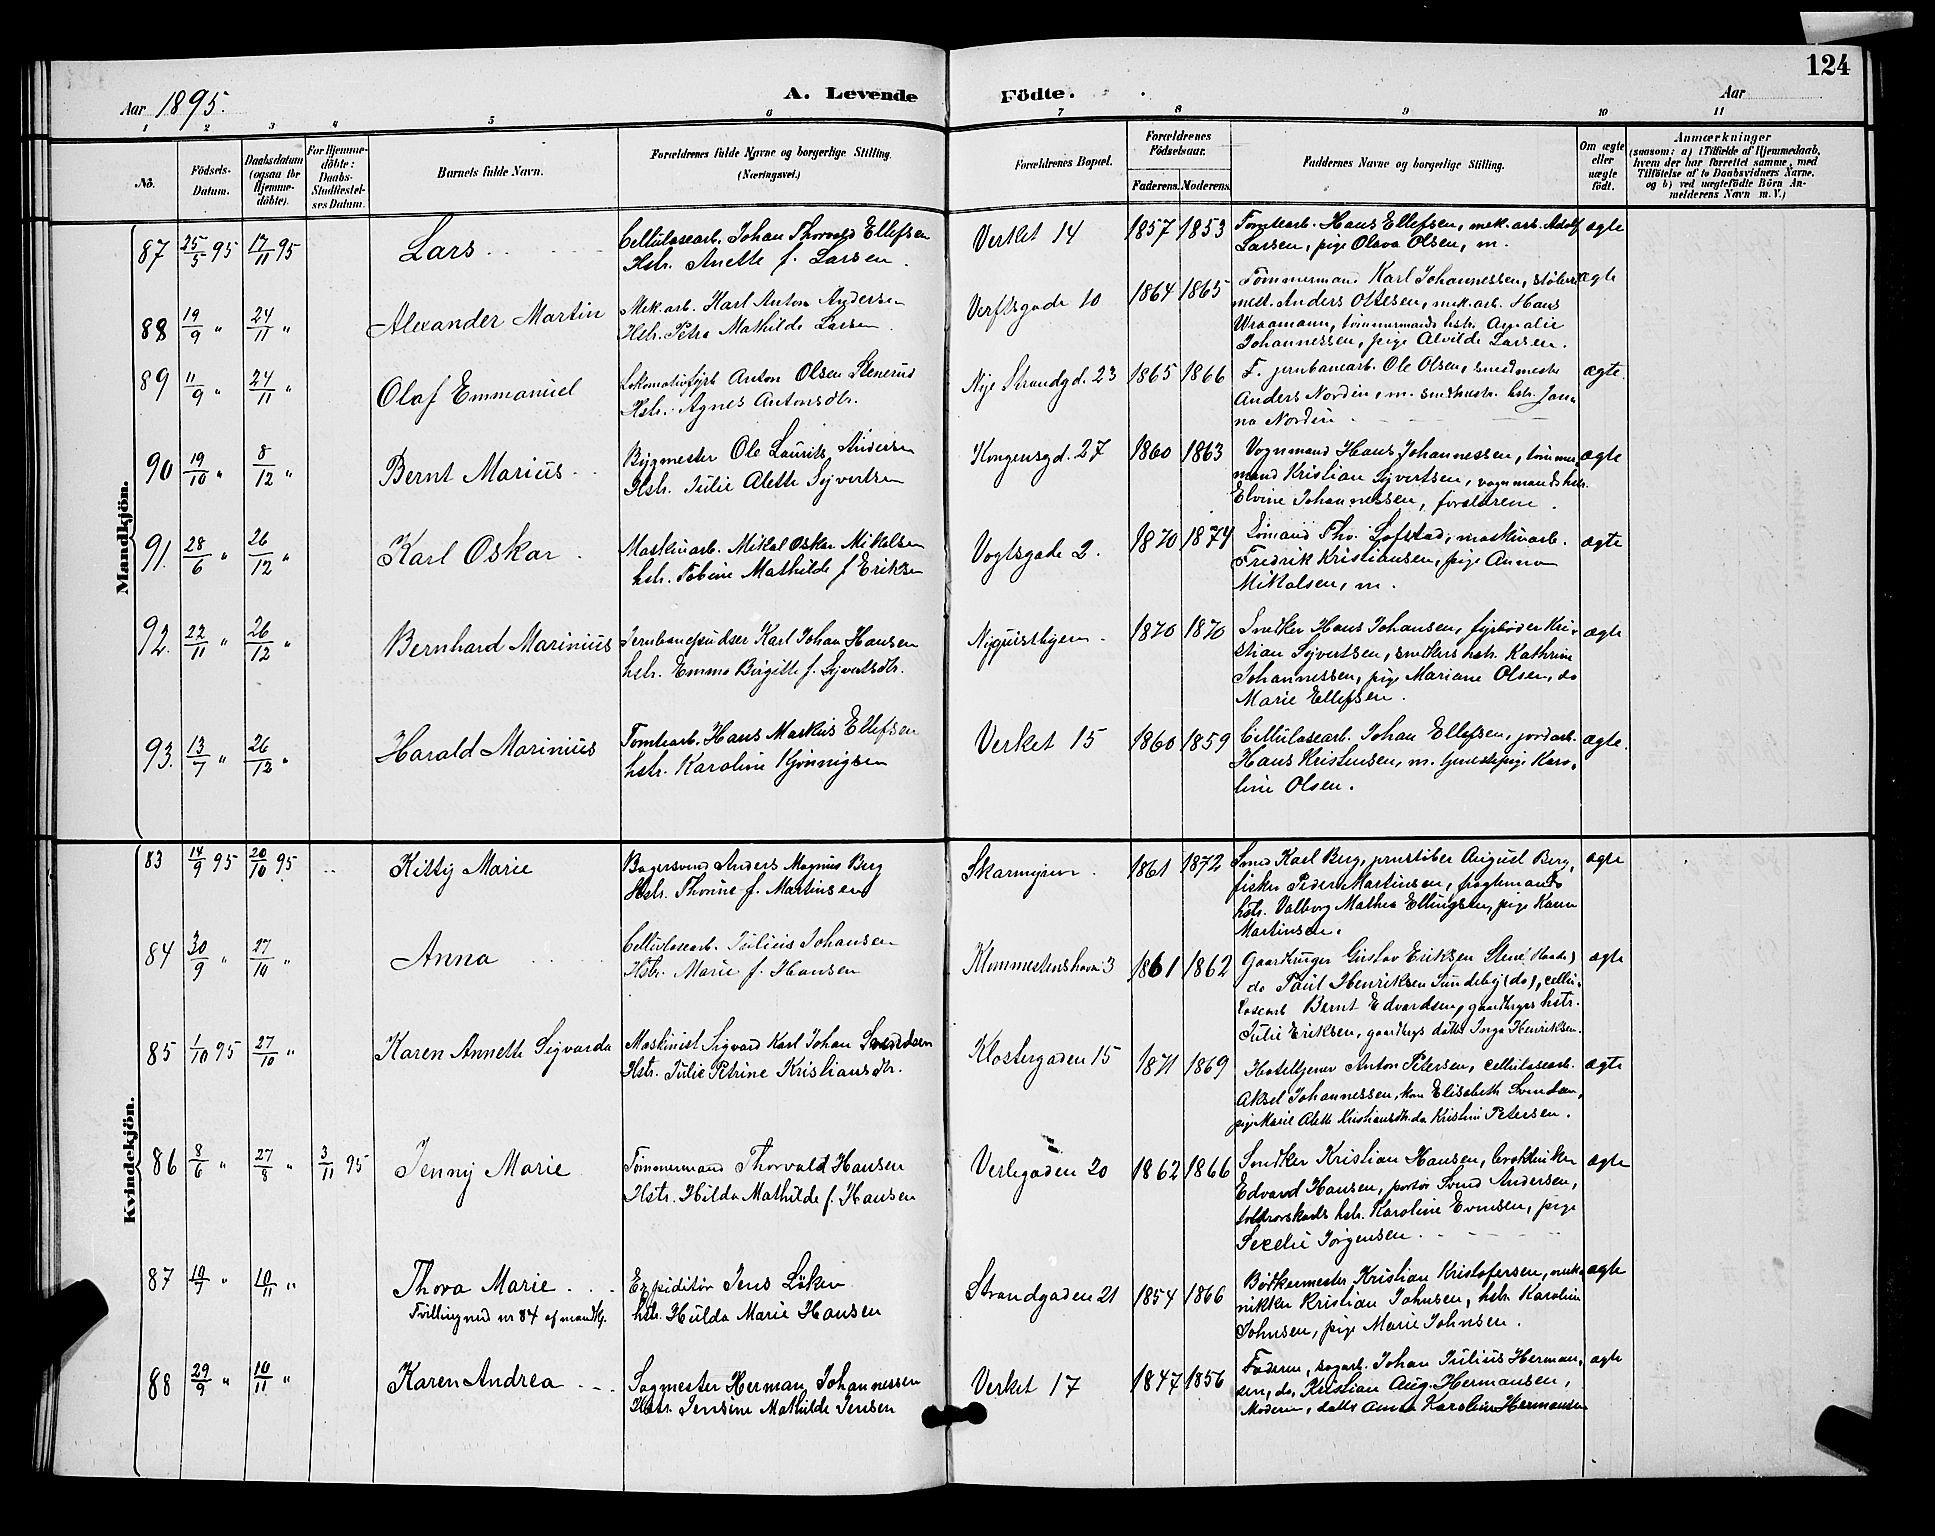 124
Aar 1895.
A. Levende Födte.
Aar
1 2 3 4 5 6 7 8 9 10 11
No.
Födsels-Datum.
Daabsdatum (ogsaa for Hjemme-döbte).
For Hjemme-döbte: Daabs-Stadfæstel-ses Datum.
Barnets fulde Navn.
Forældrenes fulde Navne og borgerlige Stilling. (Næringsvei.)
Forældrenes Bopæl.
Forældrenes Födselsaar.
Faderens. Moderens.
Faddernes Navne og borgerlige Stilling.
Om ægte eller uægte födt.
Anmærkninger
(saasom: a) i Tilfælde af Hjemmedaab, hvem der har forrettet samme, med Tilföielse af to Daabsvidners Navne, og b) ved uægtefödte Börn An-melderens Navn m. V.)
Mandkjön.
87 25/5 95 17/11 95 Lars
Cellulosearb. Johan Thorvald Ellefsen
Hstr. Anette f. Larsen.
Verket 14 1857 1853
Tomtearb. Hans Ellefsen, mek. arb. Adolf
Larsen, pige Olava Olsen, m.
ægte
88 19/9 " 24/11 " Alexander Martin
Mek. arb. Karl Anton Andersen
Hstr. Petra Mathilde Larsen
Verftsgade 10 1864 1865
Tömmermand Karl Johannessen, støberi
mest. Anders Ottesen, mek. arb. Hans
Wraamann, tömmermands hstr. Amalie
Johannessen, pige Alvilde Larsen.
ægte
89 11/9 " 24/11 " Olaf Emmanuel
Lokomotivfyrb Anton Olsen Stenerud
Hstr. Agnes Antonsdtr.
Nye Strandgd. 23 1865 1866
F. jernbanearb. Ole Olsen, smedmester
Anders Nordin, m. smedmestr. hstr. Jon-
na Nordin
ægte.
90 19/10 " 8/12 " Bernt Marius
Bygmester Ole Laurits Andersen
Hstr. Julie Alette Syvertsen
Kongensgd. 27 1860 1863
Vognmand Hans Johannessen, tömmer-
mand Kristian Syvertsen, vognmands hstr.
Elvine Johannessen, forældrene.
ægte
91. 28/6 " 26/12 " Karl Oskar
Maskinarb. Mikal Oskar Mikalsen
hstr. Tobine Mathilde f Eriksen
Vogtsgade 2. 1870 1874
Sömand Thv. Lofstad, maskinarb.
Fredrik Kristiansen, pige Anna
Mikalsen, m.
ægte
92. 22/11 " 26/12 " Bernhard Marinius
Jernbanepudser Karl Johan Hansen
hstr. Emma Birgitte f. Syvertsdtr.
Nyquistbyen 1870 1870
Snedker Hans Johansen, fyrbøder Kri-
stian Syvertsen, snedkers hstr. Kathrine
Johannessen, pige Mariane Olsen, do
Marie Ellefsen.
ægte
93. 13/7 " 26/12 " Harald Marinius
Tomtearb. Hans Markus Ellefsen
hstr. Karoline Kjönnigsen
Verket 15 1860 1859
Cellulosearb. Johan Ellefsen, jordarb.
Hans Kristensen, m. tjenestepige Karo-
line Olsen.
ægte.
Kvindekjön.
83 14/9 95 20/10 95 Kitty Marie
Bagersvend Anders Magnus Berg
Hstr. Thorine f. Martinsen
Skarmyren 1861 1872
Smed Karl Berg, jernstøber August Berg,
fisker Peder Martinsen, fragtemands
hstr. Valborg Mathea Ellingsen, pige Karen
Martinsen.
ægte
84 30/9 " 27/10 " Anna
Cellulosearb. Julius Johansen
Hstr. Marie f. Hansen
Klommestenshavn 3 1861 1862
Gaardbruger Gustav Eriksen Stene (Raade)
do Paul Henriksen Sundeby (do), cellu-
losearb Bernt Edvardsen, gaardbrgers hstr.
Julie Eriksen, gaardbrgs datter Inga Henriksen.
ægte
85 1/10 95 27/10 " Karen Annette Sigvarda
Maskinist Sigvard Karl Johan Svendsen
Hstr. Julie Petrine Kristiansdtr.
Klostergaden 15 1871 1869
Hoteltjener Anton Petersen, cellulosearb.
Aksel Johannessen, kone Elisabeth Svendsen,
pige Marie Alette Kristiansdtr. do Kristine Petersen.
ægte
86 8/6 " 27/8 " 3/11 95 Jenny Marie
Tömmermand Thorvald Hansen
Hstr. Hilda Mathilde f. Hansen
Verlegaden 20 1862 1866
Snedker Kristian Hansen,
Edvard Hansen, portør Svend Andersen,
hstr. Karoline Evensen, pige
Secelie Jörgensen
ægte
87 10/7 " 10/11 " Thora Marie
Tvilling med nr 84 af mandkj.
Expeditör Jens Löken
hstr. Hulda Marie Hansen
Strandgaden 21 1854 1866
Bödkermester Kristian Kristofersen, mek-
nikker Kristian Johnsen, hstr. Karoline
Johnsen, pige Marie Johnsen.
ægte
88 29/9 " 10/11 " Karen Andrea
Sagmester Herman Johannessen
Hstr. Jensine Mathilde Jensen
Verket 17 1847 1856
Faderen, sagarb. Johan Julius Herman-
sen, do, Kristian Aug. Hermansen,
Moderen, datter Anna Karoline Hermansen
ægte